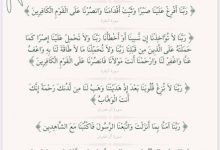 ﴿ رَبَّنَا أَفْرِغْ عَلَيْنَا صَبْرًا وَثَبِّتْ أَقْدَامَنَا وَانصُرْنَا عَلَى الْقَوْمِ الْكَافِرِينَ ﴾
﴿ رَبَّنَا لَا تُؤَاخِذْنَا إِن نَّسِينَا أَوْ أَخْطَأْنَا رَبَّنَا وَلَا تَحْمِلْ عَلَيْنَا إِصْرًا كَمَا
حَمَلْتَهُ عَلَى الَّذِينَ مِن قَبْلِنَا رَبَّنَا وَلَا تُحَمِّلْنَا مَا لَا طَاقَةَ لَنَا بِهِ وَاعْفُ
عَنَّا وَاغْفِرْ لَنَا وَارْحَمْنَا أَنتَ مَوْلَانَا فَانصُرْنَا عَلَى الْقَوْمِ الْكَافِرِينَ ﴾
﴿ رَبَّنَا لَا تُزِغْ قُلُوبَنَا بَعْدَ إِذْ هَدَيْتَنَا وَهَبْ لَنَا مِن لَّدُنكَ رَحْمَةً إِنَّكَ
أَنتَ الْوَهَّابُ ﴾
﴿ رَبَّنَا آمَنَّا بِمَا أَنزَلْتَ وَاتَّبَعْنَا الرَّسُولَ فَاكْتُبْنَا مَعَ الشَّاهِدِينَ ﴾